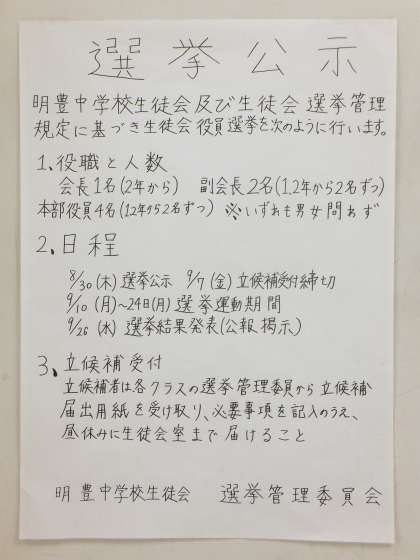 選挙公示
明豊中学校生徒会及び生徒会 選挙管理
規定に基づき生徒会 役員選挙を次のように行います。
1、役職と人数
会長1名(2年から) 副会長2名(1.2年から2名ずつ)
本部役員4名(1.2年から2名ずつ) ※いずれも男女問わず
2、日程
8/30(木)選挙公示 9/7(金)立候補受付締切
9/10(月)~24日(月)選挙運動期間
9/26(水)選挙結果発表(公報掲示)
3、立候補受付
立候補者は各クラスの選挙管理委員から立候補
届出用紙を受け取り、必要事項を記入のうえ、
昼休みに生徒会室まで届けること
明豊中学校生徒会 選挙管理委員会